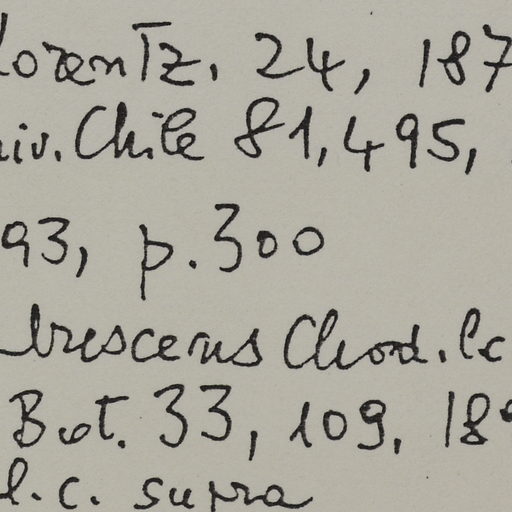 Lorentz, 24, 187
niv. Chile 81, 495,
93, p. 300
brescens Chod. l.c
Bot. 33, 109, 189
l.c. supra